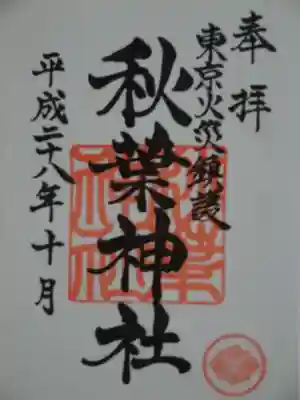 奉拝
東京火災鎮護
秋葉神社
平成二十八年十月
秋葉神社